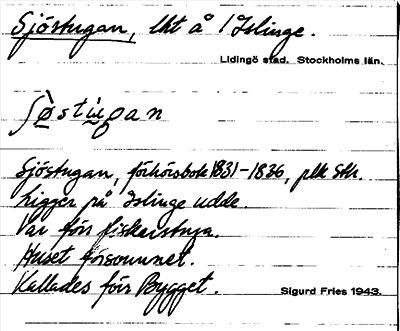 Sjöstugan, lht å / Islinge.
Lidingö stad. Stockholms län.
Sjöstugan, förhörsbok 1831-1836, plk Sth.
Ligger på Islinge udde.
Var förr fiskarstuga.
Huset försvunnet.
Kallades förr Bygget.
Sigurd Fries 1943.